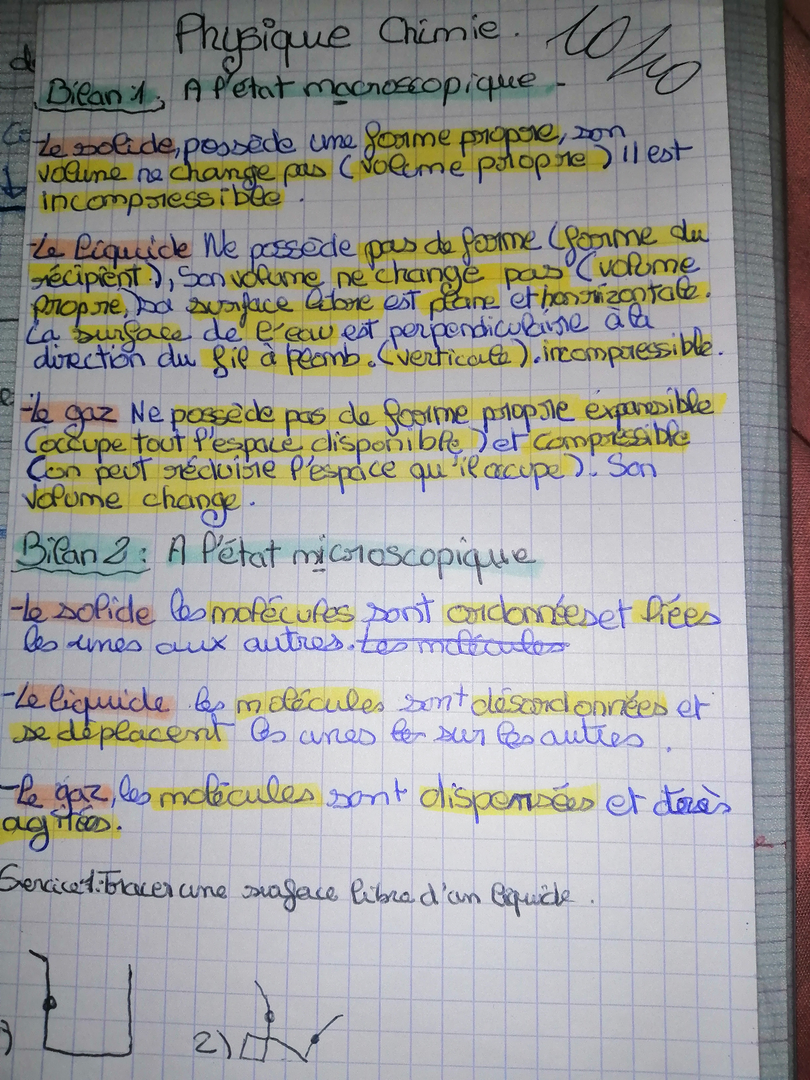 Physique Chimie.
Bilan 1: A l'état macroscopique.
-Le solide, possède une forme propre, son
volume ne change pas (volume propre) il est
incompressible.
-Le liquide Ne possède pas de forme (forme du
récipient), son volume ne change pas (volume
propre, sa surface libre est plane et horizontale.
La surface de l'eau est perpendiculaire à la
direction du fil à plomb. (verticale). incompressible.
-le gaz Ne possède pas de forme propre expansible
(occupe tout l'espace disponible) et compressible
(on peut réduire l'espace qu'il occupe). Son
volume change.
Bilan 2: A l'état microscopique
-le solide les molécules sont ordonnées et liées
les unes aux autres. Les molécules
-Le liquide les molécules sont désordonnées et
se déplacent les unes le sur les autres.
-le gaz, les molécules sont dispersées et très
agitées.
1: Tracer une surface libre d'un liquide.
2)